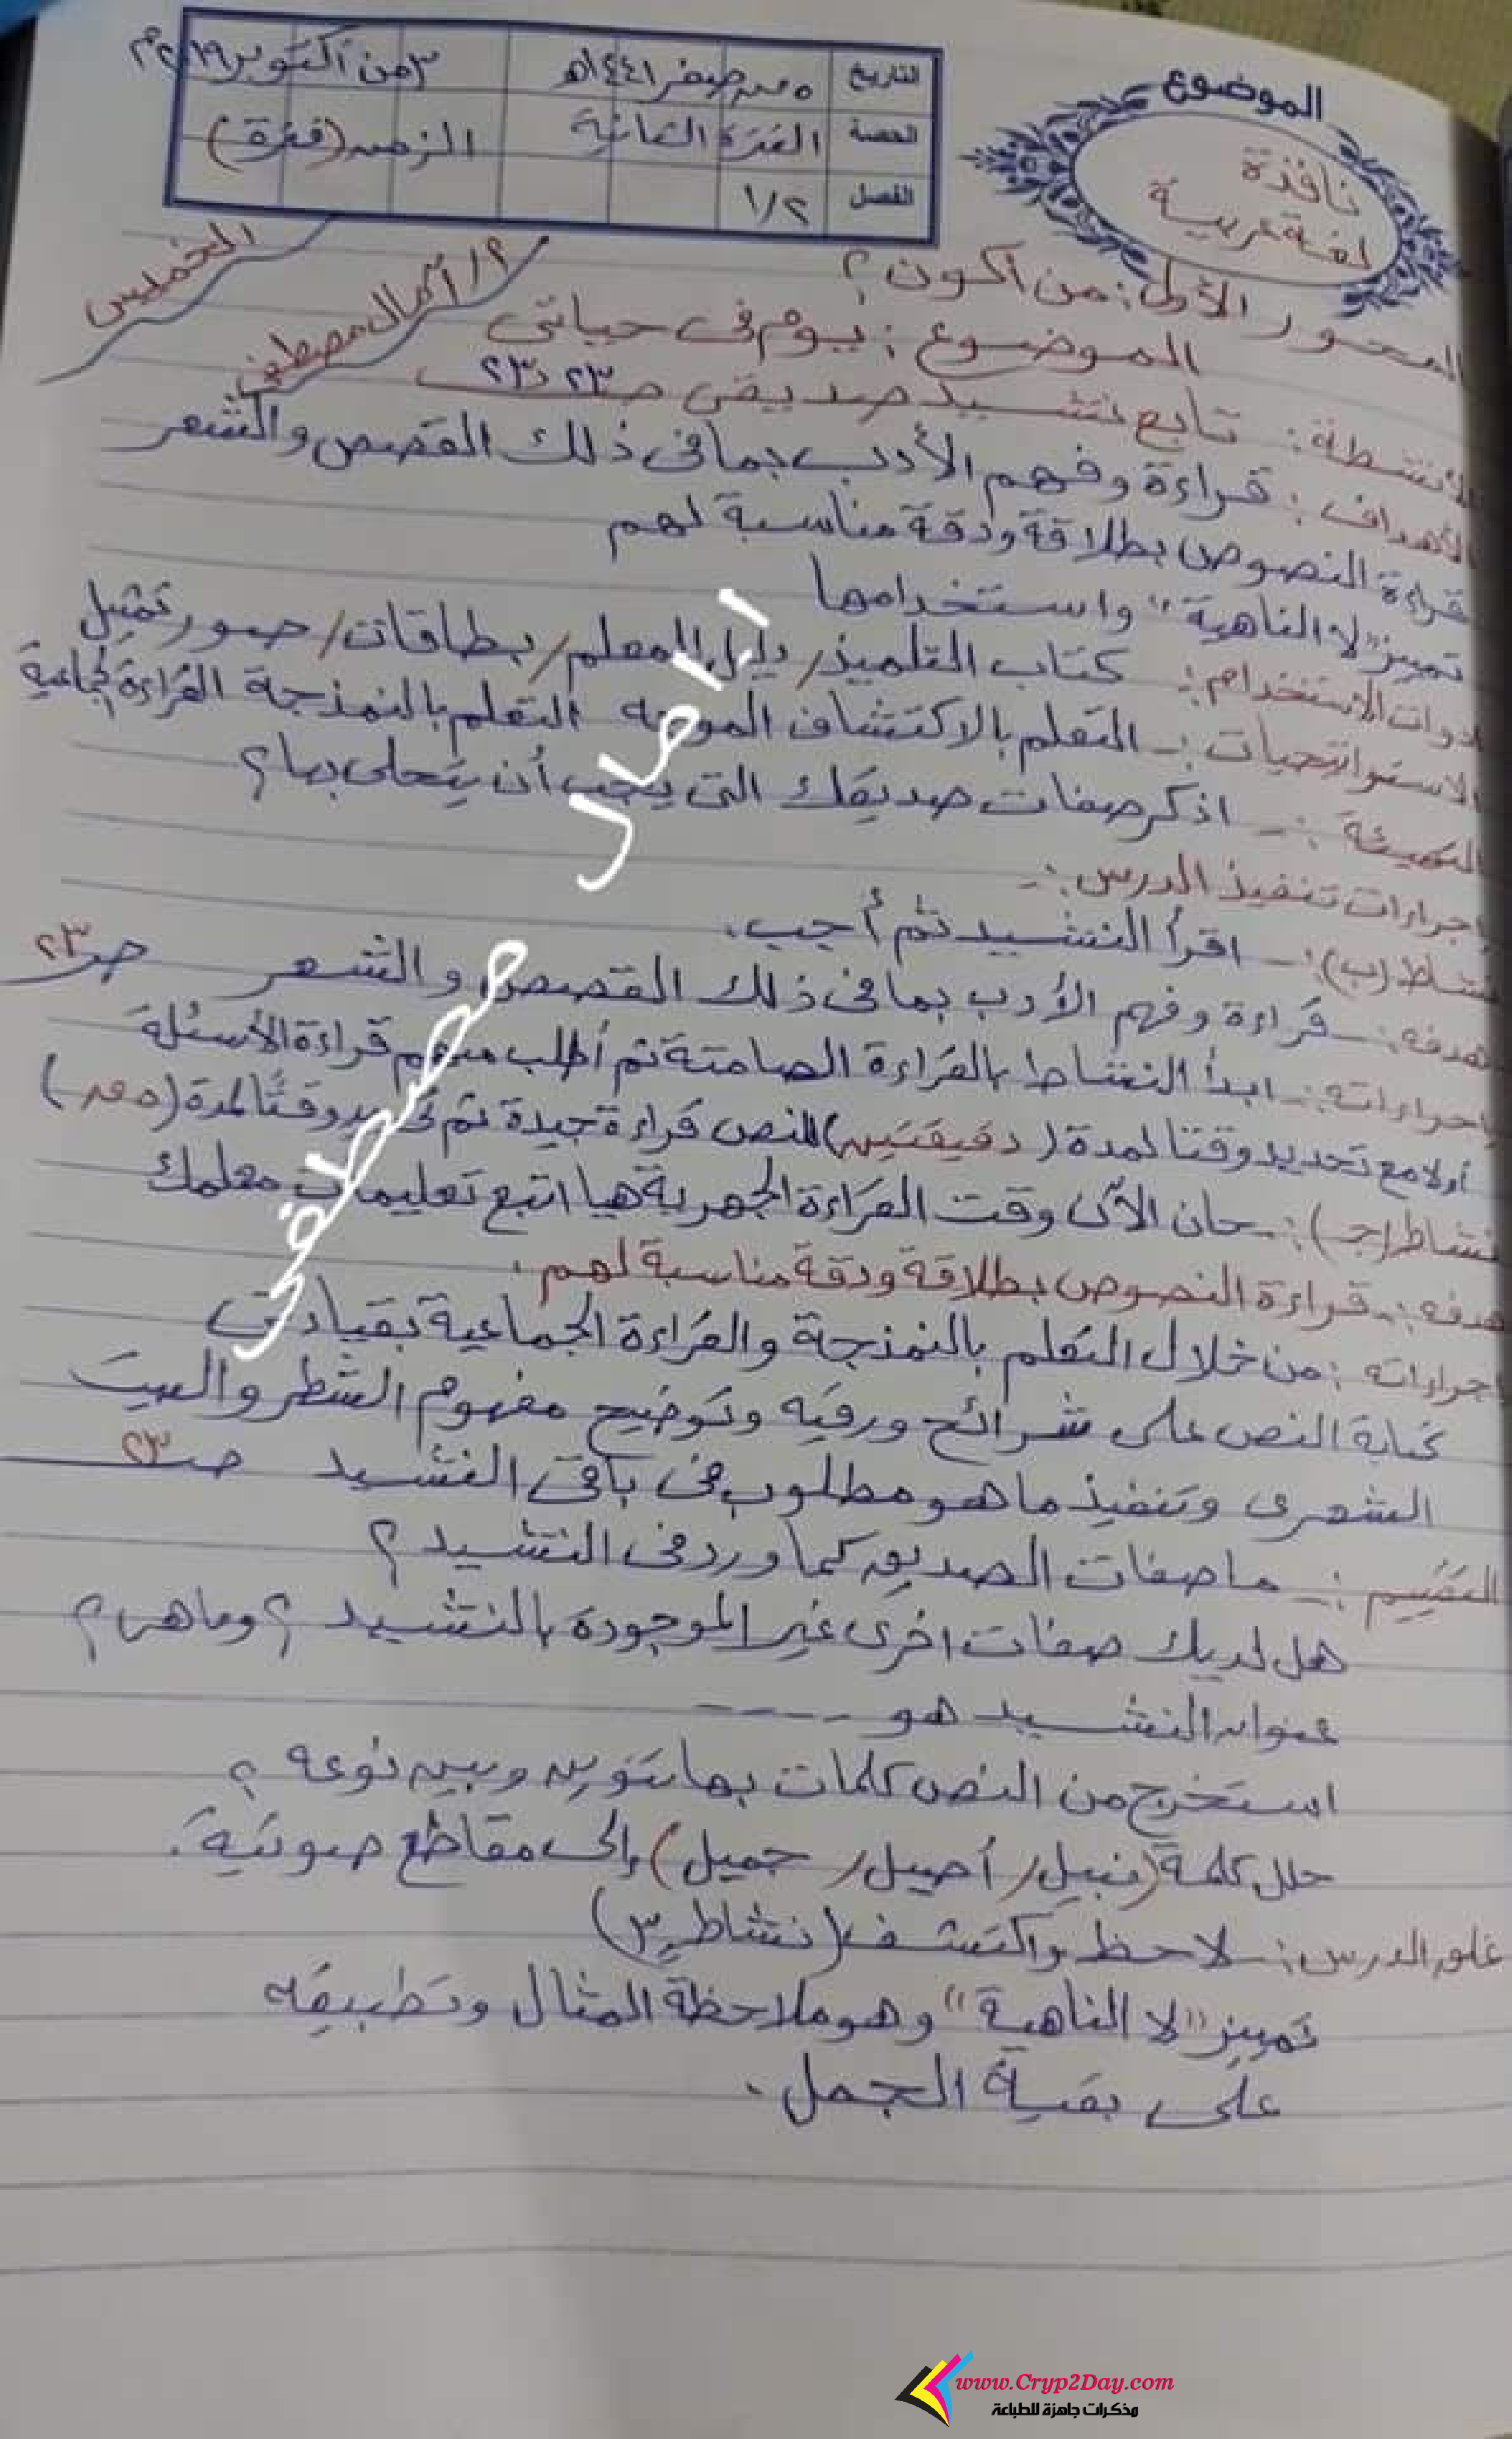 الموضوع
نافذة
لغة عربية
التاريخ ٥ من صفر ١٤٤١هـ ٣ من أكتوبر ٢٠١٩م
الحصة الفترة الثانية الزمن (فترة)
الفصل ١/٢
الخميس
أ/ آمال مصطفى
المحور الأول: من أكون؟
الموضوع: يوم فى حياتى
الأنشطة: تابع نشيد صديقى صـ ٢٣
الأهداف: قراءة وفهم الأدب بما فى ذلك القصص والشعر
قراءة النصوص بطلاقة ودقة مناسبة لهم
تمييز "لا الناهية" واستخدامها
أدوات الاستخدام: كتاب التلميذ/ دليل المعلم/ بطاقات/ صور تمثيل
الاستراتيجيات:- التعلم بالاكتشاف الموجه التعلم بالنمذجة القراءة الجماعية
التهيئة:- اذكر صفات صديقك التى يجب أن يتحلى بها؟
إجراءات تنفيذ الدرس:-
نشاط (ب):- اقرأ النشيد ثم أجب.
هدفه:- قراءة وفهم الأدب بما فى ذلك القصص والشعر صـ ٢٣
إجراءاته:- ابدأ النشاط بالقراءة الصامتة ثم أطلب منهم قراءة الأسئلة
أولا مع تحديد وقتا لمدة (دقيقتين) للنص قراءة جيدة ثم تحديد وقتًا لمدة (٥ ق)
نشاط (جـ):- حان الآن وقت القراءة الجهرية هيا اتبع تعليمات معلمك
هدفه:- قراءة النصوص بطلاقة ودقة مناسبة لهم.
إجراءاته: من خلال التعلم بالنمذجة والقراءة الجماعية بقيادتى
كتابة النص على شرائح ورقيه وتوضيح مفهوم الشطر والبيت
الشعرى وتنفيذ ما هو مطلوب فى باقى النشيد صـ ٢٣
التقييم:- ما صفات الصديق كما ورد فى النشيد؟
هل لديك صفات اخرى غير الموجودة بالنشيد؟ وما هى؟
عنوان النشيد هو -----
استخرج من النص كلمات بها تنوين وبين نوعه؟
حلل كلمة (نبيل/ أصيل/ جميل) إلى مقاطع صوتية.
غلق الدرس:- لاحظ واكتشف (نشاط ٣)
تمييز "لا الناهية" وهو ملاحظة المثال وتطبيقه
على بقية الجمل.
أ. آمال
مصطفى
www.Cryp2Day.com
مذكرات جاهزة للطباعة